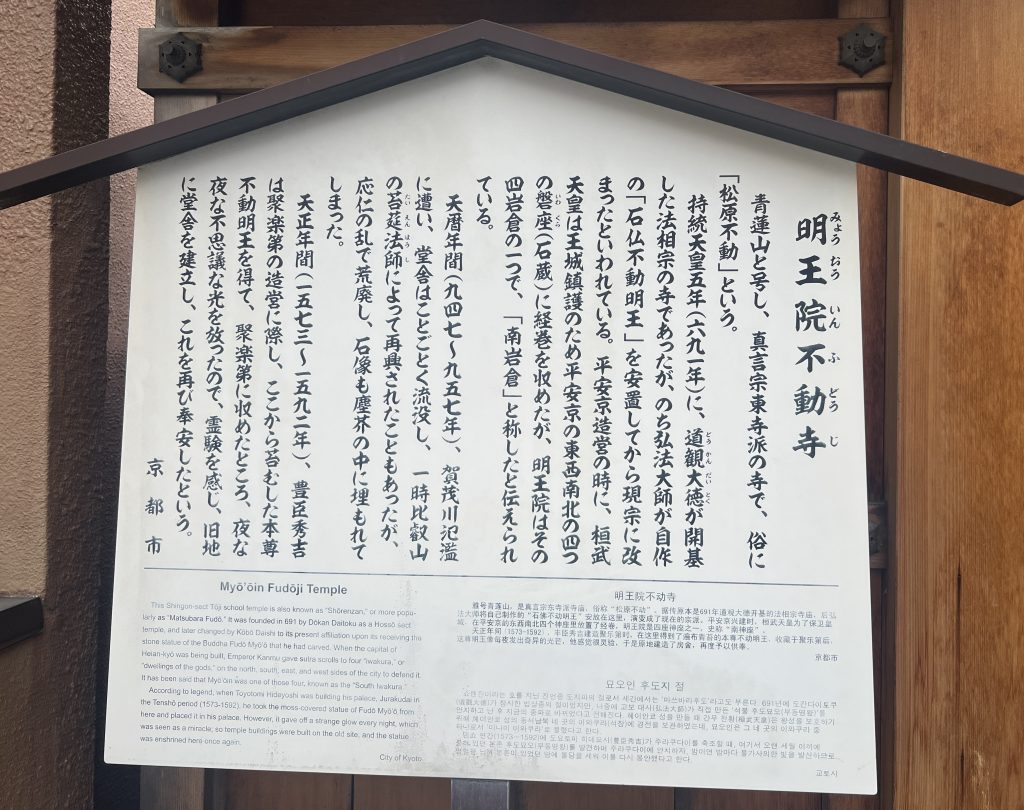 明王院不動寺
みょうおういんふどうじ
青蓮山と号し、真言宗東寺派の寺で、俗に
「松原不動」という。
持統天皇五年(六九一年)に、道観大徳が開基
どうかんだいとく
した法相宗の寺であったが、のち弘法大師が自作
の「石仏不動明王」を安置してから現宗に改
まったといわれている。平安京造営の時に、桓武
天皇は王城鎮護のため平安京の東西南北の四つ
の磐座(石蔵)に経巻を収めたが、明王院はその
いわくら
四岩倉の一つで、「南岩倉」と称したと伝えられ
ている。
天暦年間(九四七~九五七年)、賀茂川氾濫
に遭い、堂舎はことごとく流没し、一時比叡山
の苔莚法師によって再興されたこともあったが、
たいえんほうし
応仁の乱で荒廃し、石像も塵芥の中に埋もれて
しまった。
天正年間(一五七三~一五九二年)、豊臣秀吉
は聚楽第の造営に際し、ここから苔むした本尊
不動明王を得て、聚楽第に収めたところ、夜な
夜な不思議な光を放ったので、霊験を感じ、旧地
に堂舎を建立し、これを再び奉安したという。
京都市
Myō'ōin Fudōji Temple
This Shingon-sect Tōji school temple is also known as "Shōrenzan," or more popu-
larly as "Matsubara Fudō." It was founded in 691 by Dōkan Daitoku as a Hossō sect
temple, and later changed by Kōbō Daishi to its present affiliation upon its receiving the
stone statue of the Buddha Fudō Myō'ō that he had carved. When the capital of
Heian-kyō was being built, Emperor Kanmu gave sutra scrolls to four "iwakura," or
"dwellings of the gods," on the north, south, east, and west sides of the city to defend it.
It has been said that Myō'ōin was one of those four, known as the "South Iwakura."
According to legend, when Toyotomi Hideyoshi was building his palace, Jurakudai in
the Tenshō period (1573-1592), he took the moss-covered statue of Fudō Myō'ō from
here and placed it in his palace. However, it gave off a strange glow every night, which
was seen as a miracle; so temple buildings were built on the old site, and the statue
was enshrined here once again.
City of Kyoto
明王院不动寺
雅号青莲山，是真言宗东寺派寺庙，俗称"松原不动"。据传原本是691年道观大德开基的法相宗寺庙，后弘
法大师将自己制作的"石佛不动明王"安放在这里，演变成了现在的宗派。平安京兴建时，桓武天皇为了保卫皇
城，在平安京的东西南北四个神座里放置了经卷，明王院是四座神座之一，史称"南神座"。
天正年间（1573-1592），丰臣秀吉建造聚乐第时，在这里得到了遍布青苔的本尊不动明王，收藏于聚乐第后，
这尊明王像每夜发出奇异的光芒，他感觉很灵验，于是原地建造了房舍，再度予以供奉。
京都市
묘오인 후도지 절
교토시